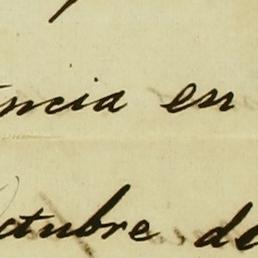 ncia en
ctubre de